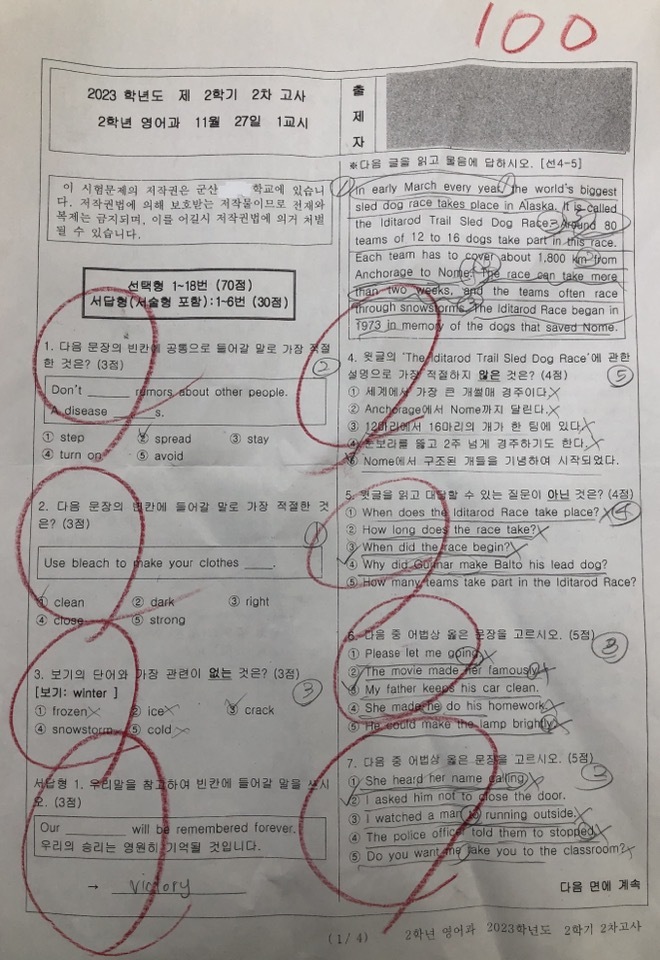 100
2023 학년도 제 2학기 2차 고사
2학년 영어과 11월 27일 1교시
출
제
자
이 시험문제의 저작권은 군산 학교에 있습니
다. 저작권법에 의해 보호받는 저작물이므로 전재와
복제는 금지되며, 이를 어길시 저작권법에 의거 처벌
될 수 있습니다.
선택형 1~18번 (70점)
서답형(서술형 포함):1~6번 (30점)
1. 다음 문장의 빈칸에 공통으로 들어갈 말로 가장 적절
한 것은? (3점)
②
Don't ______ rumors about other people.
A disease ______ s.
① step ② spread ③ stay
④ turn on ⑤ avoid
2. 다음 문장의 빈칸에 들어갈 말로 가장 적절한 것
은? (3점)
①
Use bleach to make your clothes ____.
① clean ② dark ③ right
④ close ⑤ strong
3. 보기의 단어와 가장 관련이 없는 것은? (3점)
[보기: winter ]
③
① frozen ② ice ③ crack
④ snowstorm ⑤ cold
서답형 1. 우리말을 참고하여 빈칸에 들어갈 말을 쓰시
오. (3점)
Our ________ will be remembered forever.
우리의 승리는 영원히 기억될 것입니다.
→ victory
※다음 글을 읽고 물음에 답하시오. [선4-5]
In early March every year, the world's biggest
sled dog race takes place in Alaska. It is called
the Iditarod Trail Sled Dog Race. Around 80
teams of 12 to 16 dogs take part in this race.
Each team has to cover about 1,800 km from
Anchorage to Nome. The race can take more
than two weeks, and the teams often race
through snowstorms. The Iditarod Race began in
1973 in memory of the dogs that saved Nome.
4. 윗글의 'The Iditarod Trail Sled Dog Race'에 관한
설명으로 가장 적절하지 않은 것은? (4점)
⑤
① 세계에서 가장 큰 개썰매 경주이다.
② Anchorage에서 Nome까지 달린다.
③ 12마리에서 16마리의 개가 한 팀에 있다.
④ 눈보라를 뚫고 2주 넘게 경주하기도 한다.
⑤ Nome에서 구조된 개들을 기념하여 시작되었다.
5. 윗글을 읽고 대답할 수 있는 질문이 아닌 것은? (4점)
① When does the Iditarod Race take place?
④
② How long does the race take?
③ When did the race begin?
④ Why did Gunnar make Balto his lead dog?
⑤ How many teams take part in the Iditarod Race?
6. 다음 중 어법상 옳은 문장을 고르시오. (5점)
③
① Please let me going.
② The movie made her famously.
③ My father keeps his car clean.
④ She made he do his homework.
⑤ He could make the lamp brightly.
7. 다음 중 어법상 옳은 문장을 고르시오. (5점)
②
① She heard her name calling.
② I asked him not to close the door.
③ I watched a man to running outside.
④ The police officer told them to stopped.
⑤ Do you want me take you to the classroom?
다음 면에 계속
(1/ 4) 2학년 영어과 2023학년도 2학기 2차고사